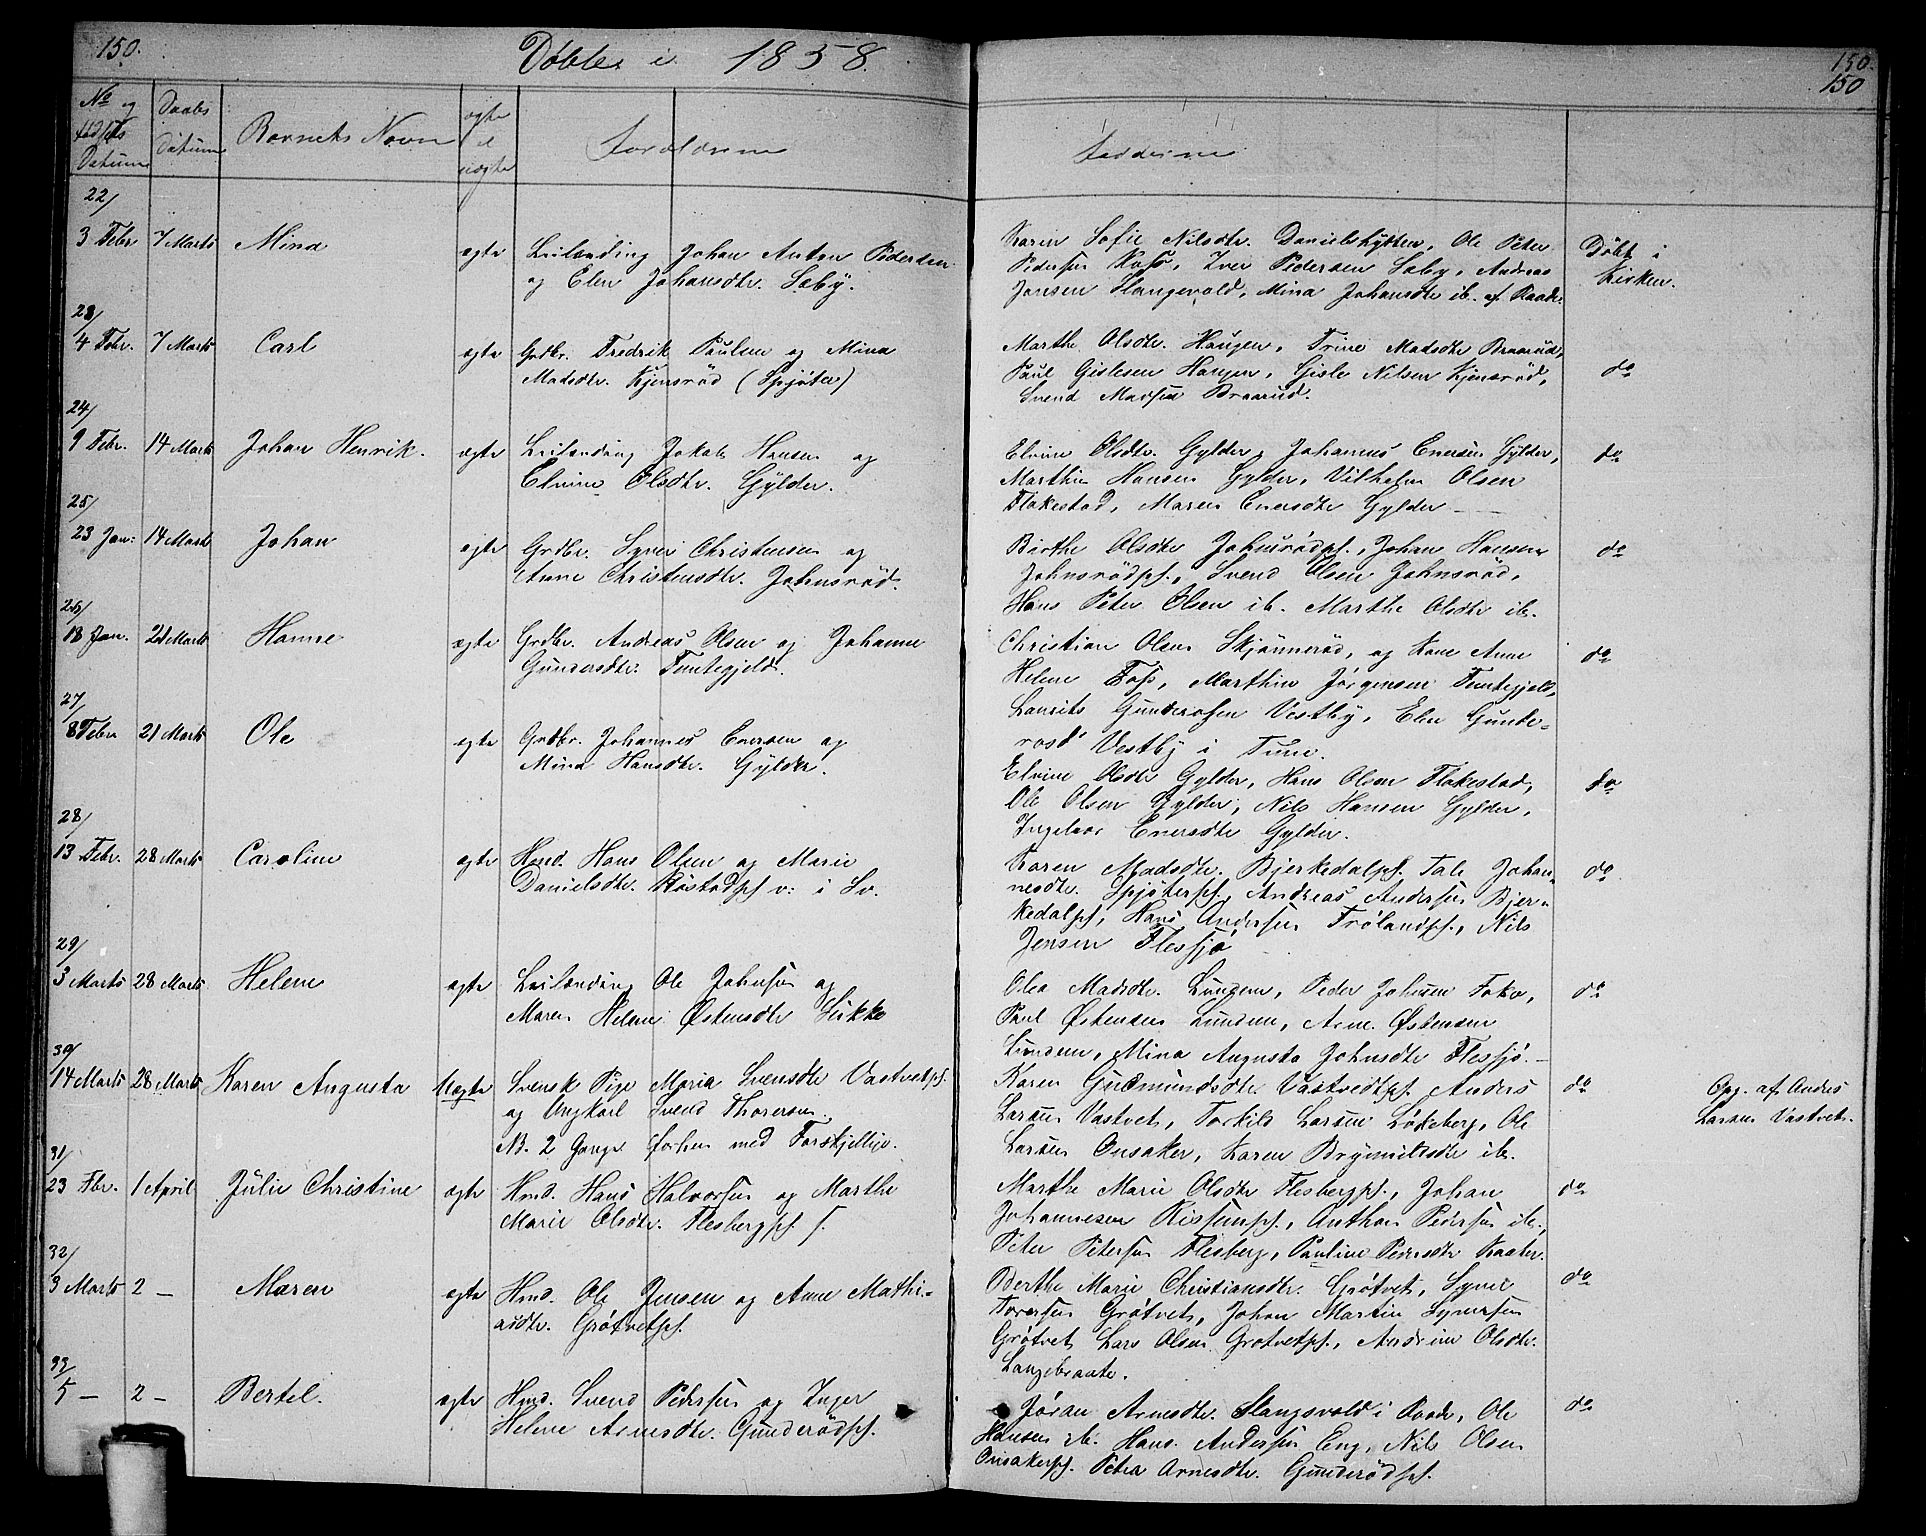 150.
Döbte i 1858.
150.
150
No og fødsels Datum
Daabs Datum
Barnets Navn
ægte el uægte
Forældrene
Fadderne
22/
3 Febr 7 Marts Mina ægte Leilænding Johan Anton Pedersen
og Elen Johansdtr. Sæby.
Karin Sofie Nilsdtr. Danielshytten, Ole Peter
Pedersen Ross, Iver Pedersen Sæby, Andreas
Jansen Slangsvold, Mina Johansdtr ib. af Raade.
Döbt i
Kirken.
23/
4 Febr. 7 Marts Carl ægte Grdbr. Fredrik Paulsen og Mina
Madsdtr. Kjensröd (Spjöter)
Marthe Olsdtr. Haugen, Trine Madsdtr Braarud,
Paul Gislesen Haugen, Gisle Nilsen Kjensröd,
Svend Madsen Braarud.
do
24/
9 Febr. 14 Marts Johan Henrik. ægte Leilænding Jakob Hansen og
Elvine Olsdtr. Gylder.
Elvine Olsdtr. Gylder, Johannes Enersen Gylder,
Marthin Hansen Gylder, Vilhelm Olsen
Flakestad, Maren Enersdtr Gylder
do
25/
23 Jan: 14 Marts Johan ægte Grdbr. Syver Christensen og
Anne Christensdtr. Johnsröd.
Birthe Olsdtr Johnsrödpl., Johan Hansen
Johnsrödpl., Svend Olsen Johnsröd,
Hans Peter Olsen ib. Marthe Olsdtr ib.
do
26/
18 Jan. 21 Marts Hanne ægte Grdbr. Andreas Olsen og Johanne
Gundersdtr. Tuntegjeld.
Christian Olsen Skjönneröd, og Kone Anne
Helene Foss, Marthin Jörgensen Tuntegjeld,
Laurits Gundersen Vestby, Elen Gunde-
rosd Vestby i Tune.
do
27/
8 Febr 21 Marts Ole ægte Grdbr. Johannes Enersen og
Mina Hansdtr. Gylder.
Elvine Olsdtr Gylder, Hans Olsen Flakestad,
Ole Olsen Gylder, Nils Hansen Gylder,
Ingebor Enersdtr Gylder.
do
28/
13 Febr. 28 Marts Caroline ægte Hmd. Hans Olsen og Marie
Danielsdtr. Röstadpl v: i Sv.
Karen Madsdtr. Bjerkedalpl. Tale Johan-
nesdtr. Spjöterpl, Andreas Andersen Bjer-
kedalpl, Hans Andersen Frölandpl., Nils
Jensen Flessjö
do
29/
3 Marts 28 Marts Helene ægte Leilænding Ole Johnsen og
Maren Helene Östensdtr Sikke
Olea Madsdtr. Lunden, Peder Johnsen Foko,
Paul Östensen Lunden, Arne Östensen
Lunden, Mina Augusta Johnsdtr Flessjö.
do
30/
14 Marts 28 Marts Karen Augusta Uægte Svensk Pige Maria Svensdtr Vastvetpl.
og Ungkarl Svend Thoresen.
NB. 2 Gange forhen med Forskjellige.
Karen Gudmundsdtr Vastvedtpl. Anders
Larsen Vastvet, Torkild Larsen Lökeberg, Ole
Larsen Onsaker, Karen Brynnildsdtr ib.
do
Opg. af Andrs
Larsen Vastvet.
31/
23 Fbr. 1 April Julie Christine ægte Hmd. Hans Halvorsen og Marthe
Marie Olsdtr. Flesbergpl.
Marthe Marie Olsdtr Flesbergpl., Johan
Johannesen Rissenpl., Anthon Pedersen ib.,
Peter Petersen Flesberg, Pauline Pedersdtr Kaater.
do
32/
3 Marts 2 — Maren ægte Hmd. Ole Jensen og Anne Mathi-
asdtr. Grötvetpl.
Berthe Marie Christiansdtr. Grötvet, Syver
Toresen Grötvet, Johan Martin Syversen
Grötvet, Lars Olsen Grotvetpl., Andrine Olsdtr.
Langebraate.
do
33/
5 — 2 — Bertel. ægte Hmd. Svend Pedersen og Inger
Helene Arnesdtr. Gunderödpl.
Jöran Arnesdtr. Slangsvold i Raade, Ole
Hansen ib. Hans Andersen Eng, Nils Olsen
Onsakerpl. Petra Arnesdtr. Gunderödpl.
do